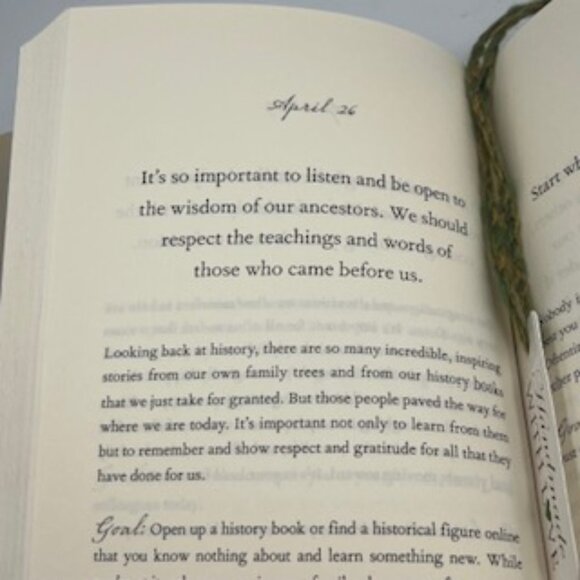 April 26
It's so important to listen and be open to
the wisdom of our ancestors. We should
respect the teachings and words of
those who came before us.
Looking back at history, there are so many incredible, inspiring
stories from our own family trees and from our history books
that we just take for granted. But those people paved the way for
where we are today. It's important not only to learn from them
but to remember and show respect and gratitude for all that they
have done for us.
Goal: Open up a history book or find a historical figure online
that you know nothing about and learn something new. While
Start